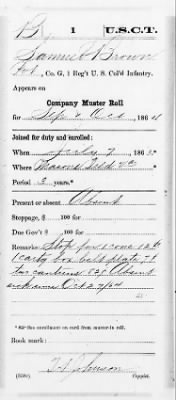 B 1 U.S.C.T.
Samuel Brown
Co. G, 1 Reg't U. S. Col'd Infantry.
Appears on
Company Muster Roll
for Sept & Oct, 1864
Joined for duty and enrolled:
When July 7, 1863.*
Where
Period 3 years.*
Present or absent Absent
Stoppage, $ 100 for
Due Gov't $ 100 for
Remarks: Stop for 1 cone
1 belt plate
canteen Absent
Oct 27/64
*See enrollment on card from muster-in roll.
Book mark:
Johnson
(358) Copyist.